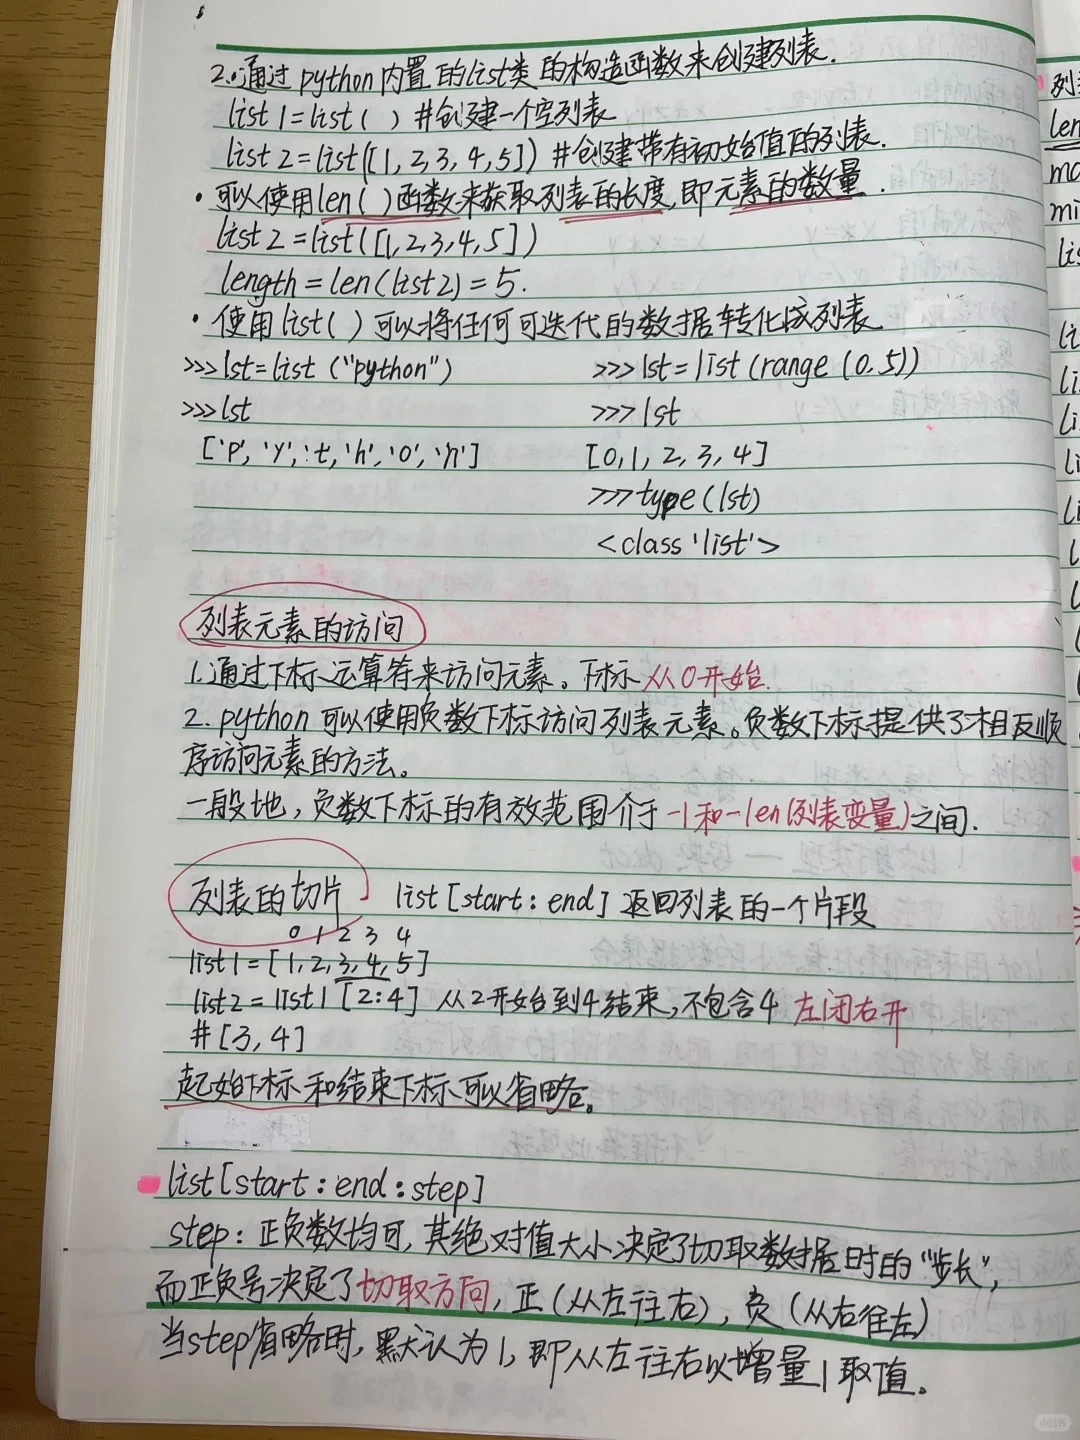 2.通过python内置的list类的构造函数来创建列表.
list1=list( ) #创建一个空列表
list2=list([1,2,3,4,5]) #创建带有初始值的列表.
·可以使用len( )函数来获取列表的长度,即元素的数量.
list2=list([1,2,3,4,5])
length=len(list2)=5.
·使用list( )可以将任何可迭代的数据转化成列表
>>>lst=list("python") >>>lst=list(range(0,5))
>>>lst >>>lst
['P','Y','t,'h','o','n'] [0,1,2,3,4]
>>>type(lst)
<class 'list'>
列表元素的访问
1.通过下标运算符来访问元素。下标从0开始.
2.python可以使用负数下标访问列表元素。负数下标提供了相反顺
序访问元素的方法。
一般地,负数下标的有效范围介于-1和-len(列表变量)之间.
列表的切片 list[start:end]返回列表的一个片段
0 1 2 3 4
list1=[1,2,3,4,5]
list2=list1[2:4] 从2开始到4结束,不包含4 左闭右开
#[3,4]
起始下标和结束下标可以省略。
list[start:end:step]
step:正负数均可,其绝对值大小决定了切取数据时的"步长",
而正负号决定了切取方向,正(从左往右),负(从右往左)
当step省略时,默认为1,即从左往右以增量1取值。
列
len
ma
mi
lis
小红书